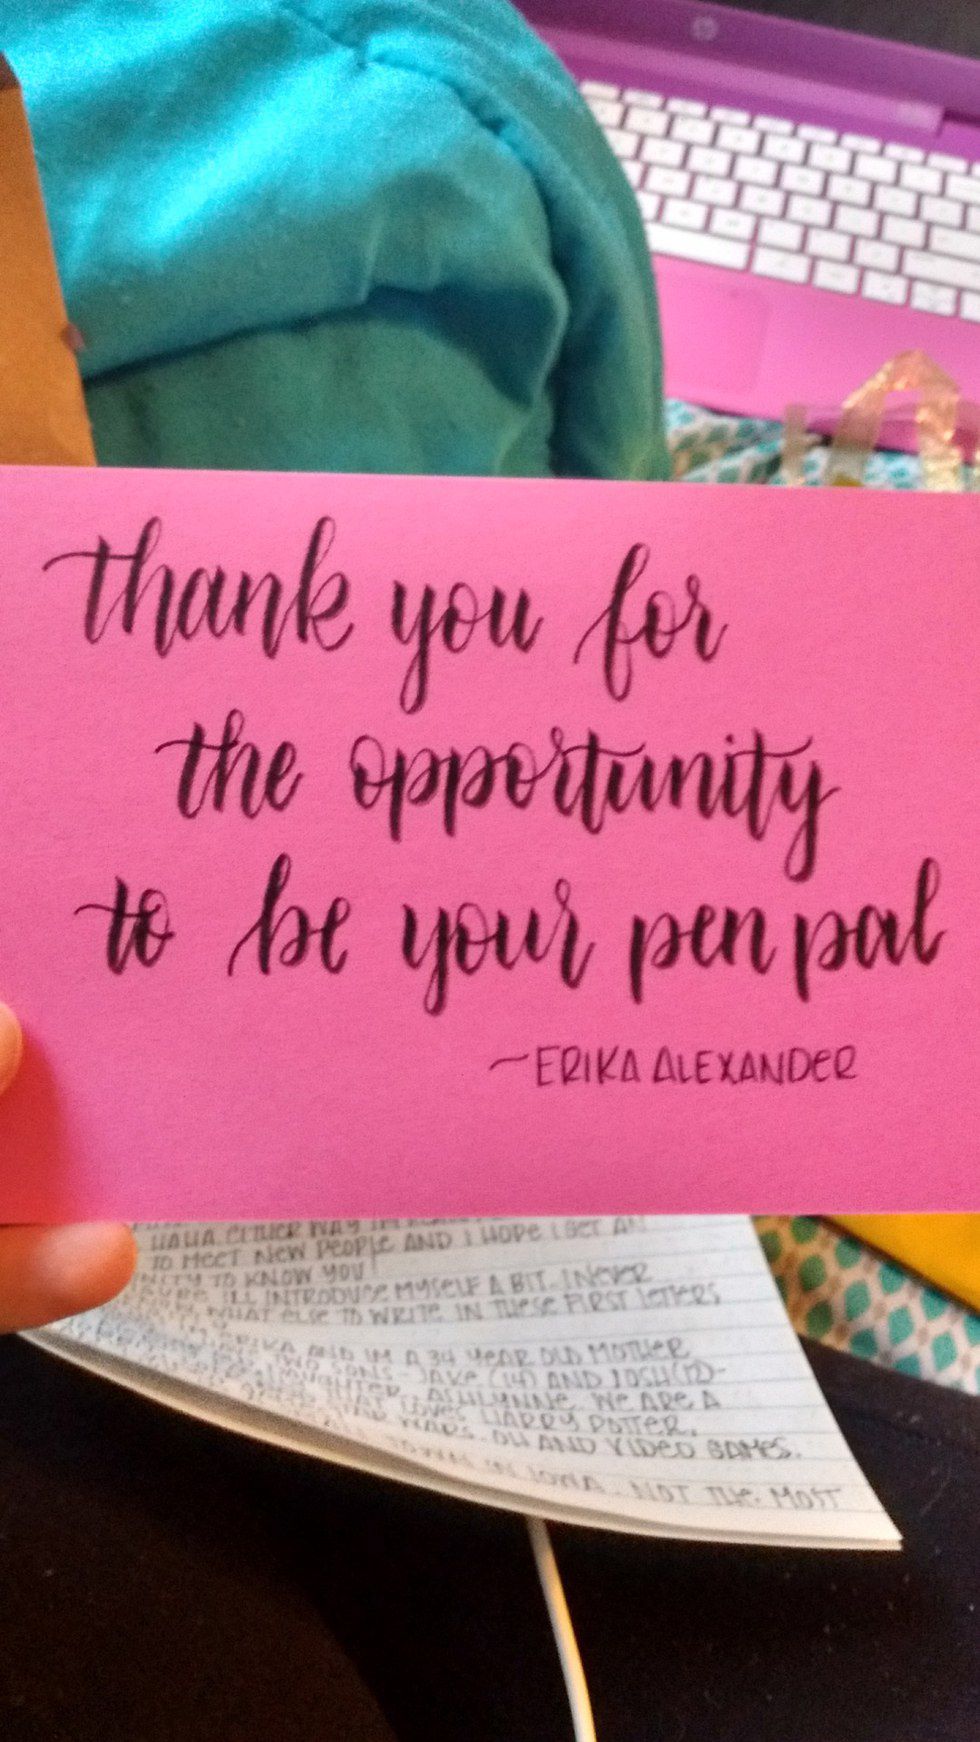 thank you for
the opportunity
to be your pen pal
~ERIKA ALEXANDER
HAHA. EITHER WAY
TO MEET NEW PEOPLE AND I HOPE I GET AN
TO KNOW YOU!
I'LL INTRODUCE MYSELF A BIT. I NEVER
WHAT ELSE TO WRITE IN THESE FIRST LETTERS
ERIKA AND IM A 34 YEAR OLD MOTHER
TWO SONS - JAKE (14) AND JOSH (12) -
DAUGHTER, ASHLYNNE. WE ARE A
HARRY POTTER,
WARS. OH AND VIDEO GAMES.
TOWN IN IOWA. NOT THE MOST